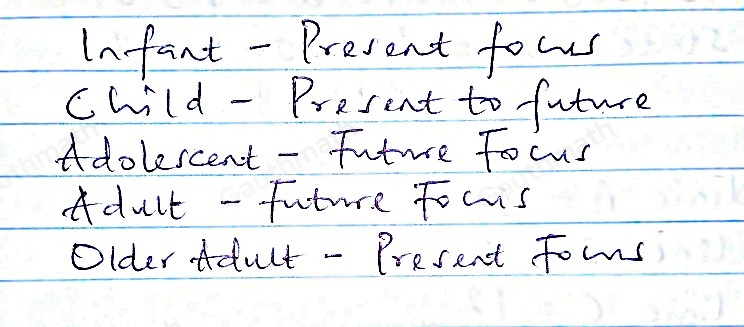 Infant - Present focus
Child - Present to future
Adolescent - Future Focus
Adult - Future Focus
Older Adult - Present Focus